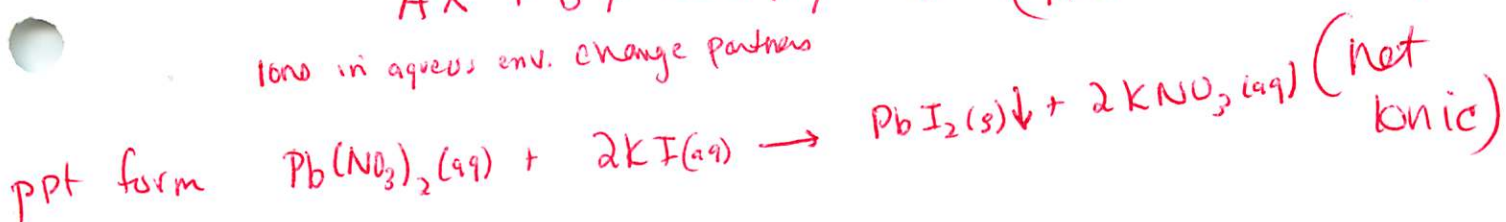 Ions in aqueous env. change partners
ppt form Pb(NO₃)₂(aq) + 2KI(aq) → PbI₂(s)↓ + 2KNO₃(aq) (net Ionic)